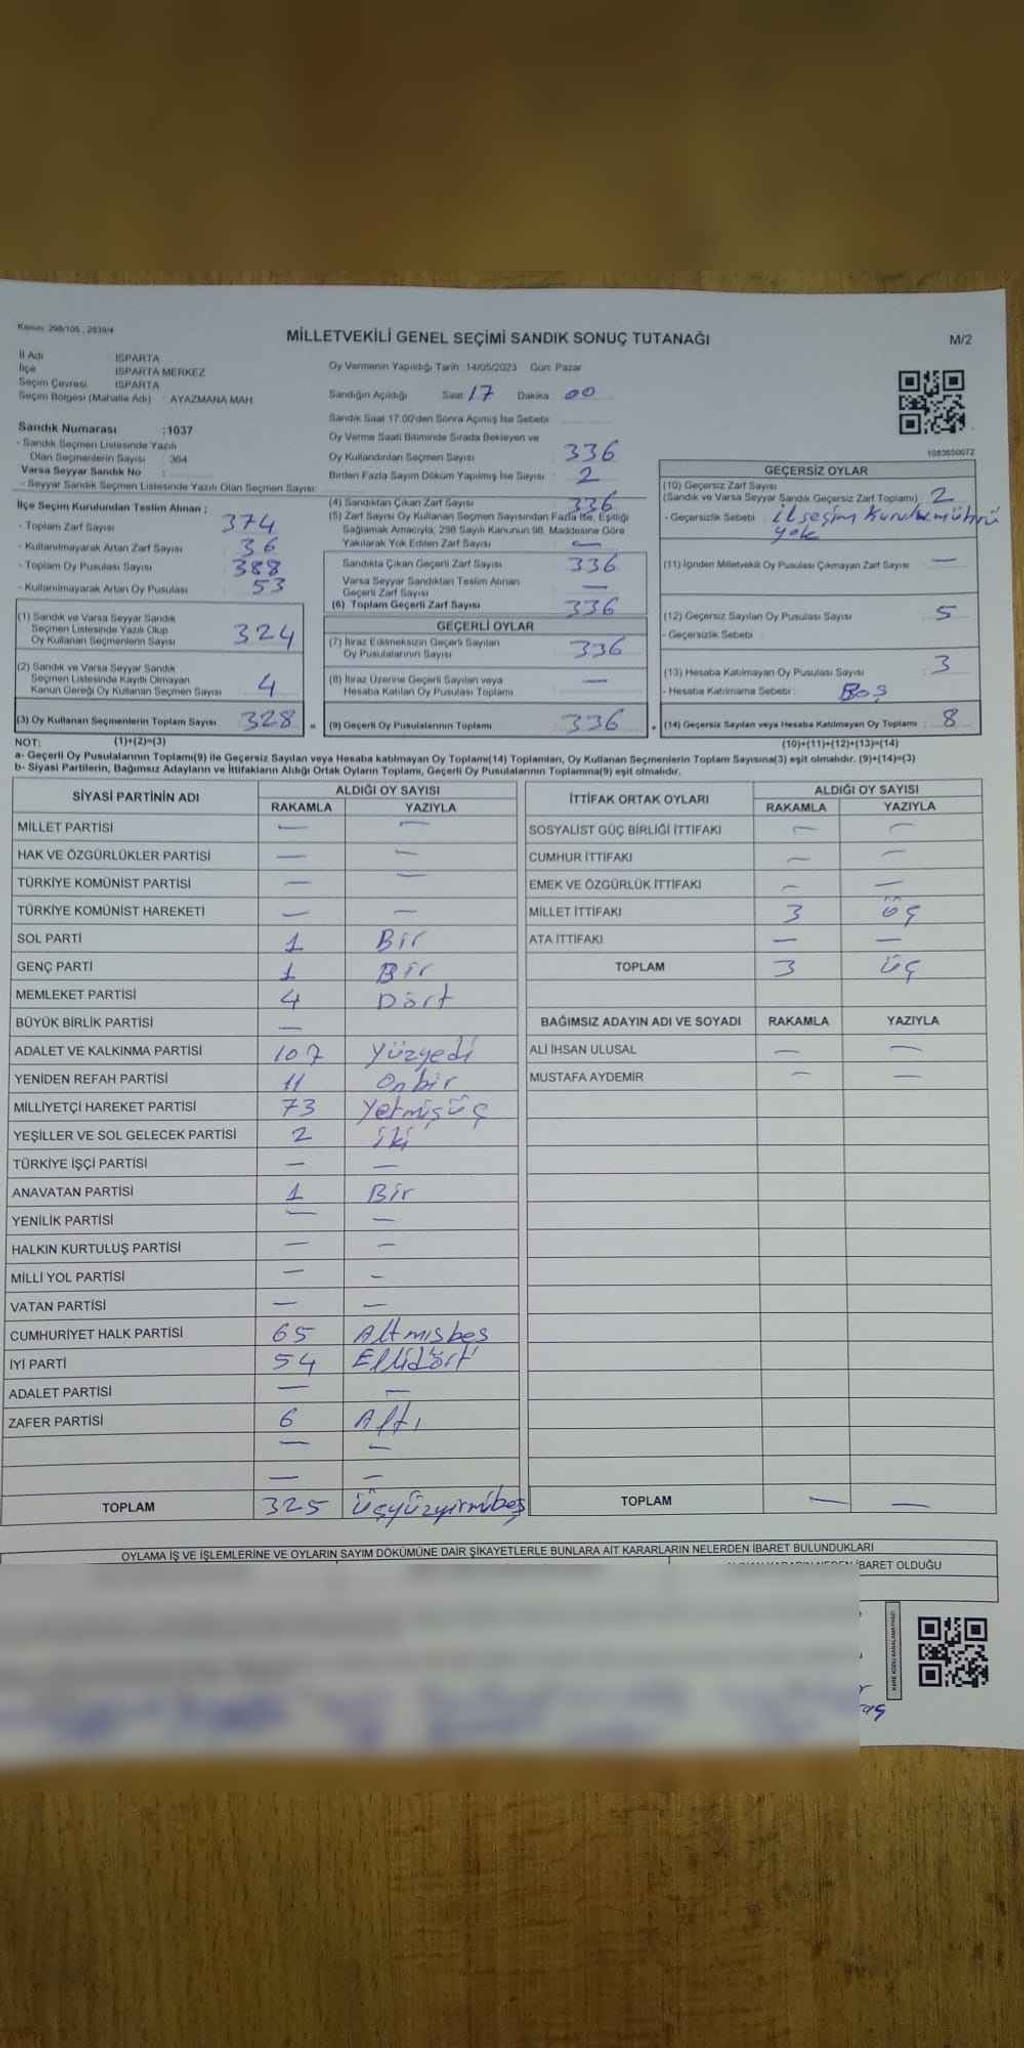 Kanun: 298/105 , 2839/4
MİLLETVEKİLİ GENEL SEÇİMİ SANDIK SONUÇ TUTANAĞI
M/2
İl Adı ISPARTA
İlçe ISPARTA MERKEZ
Seçim Çevresi ISPARTA
Seçim Bölgesi (Mahalle Adı) : AYAZMANA MAH
Sandık Numarası :1037
- Sandık Seçmen Listesinde Yazılı
Olan Seçmenlerin Sayısı : 364
Varsa Seyyar Sandık No :
- Seyyar Sandık Seçmen Listesinde Yazılı Olan Seçmen Sayısı:
Oy Vermenin Yapıldığı Tarih: 14/05/2023 Gün: Pazar
Sandığın Açıldığı Saat 17 Dakika 00
Sandık Saat 17.00'den Sonra Açılmış İse Sebebi
Oy Verme Saati Bitiminde Sırada Bekleyen ve
Oy Kullandırılan Seçmen Sayısı 336
Birden Fazla Sayım Döküm Yapılmış İse Sayısı 2
1083650072
İlçe Seçim Kurulundan Teslim Alınan ;
- Toplam Zarf Sayısı 374
- Kullanılmayarak Artan Zarf Sayısı 36
- Toplam Oy Pusulası Sayısı 388
- Kullanılmayarak Artan Oy Pusulası 53
(1) Sandık ve Varsa Seyyar Sandık
Seçmen Listesinde Yazılı Olup
Oy Kullanan Seçmenlerin Sayısı 324
(2) Sandık ve Varsa Seyyar Sandık
Seçmen Listesinde Kayıtlı Olmayan
Kanun Gereği Oy Kullanan Seçmen Sayısı 4
(3) Oy Kullanan Seçmenlerin Toplam Sayısı 328 =
(4) Sandıktan Çıkan Zarf Sayısı 336
(5) Zarf Sayısı Oy Kullanan Seçmen Sayısından Fazla İse, Eşitliği
Sağlamak Amacıyla, 298 Sayılı Kanunun 98. Maddesine Göre
Yakılarak Yok Edilen Zarf Sayısı —
Sandıkta Çıkan Geçerli Zarf Sayısı 336
Varsa Seyyar Sandıktan Teslim Alınan
Geçerli Zarf Sayısı —
(6) Toplam Geçerli Zarf Sayısı 336
GEÇERLİ OYLAR
(7) İtiraz Edilmeksizin Geçerli Sayılan
Oy Pusulalarının Sayısı 336
(8) İtiraz Üzerine Geçerli Sayılan veya
Hesaba Katılan Oy Pusulası Toplamı —
(9) Geçerli Oy Pusulalarının Toplamı 336 +
GEÇERSİZ OYLAR
(10) Geçersiz Zarf Sayısı
(Sandık ve Varsa Seyyar Sandık Geçersiz Zarf Toplamı) 2
- Geçersizlik Sebebi : ilseçim Kurulu mührü
yok
(11) İçinden Milletvekili Oy Pusulası Çıkmayan Zarf Sayısı —
(12) Geçersiz Sayılan Oy Pusulası Sayısı 5
- Geçersizlik Sebebi
(13) Hesaba Katılmayan Oy Pusulası Sayısı 3
- Hesaba Katılmama Sebebi : Boş
(14) Geçersiz Sayılan veya Hesaba Katılmayan Oy Toplamı 8
NOT: (1)+(2)=(3)
(10)+(11)+(12)+(13)=(14)
a- Geçerli Oy Pusulalarının Toplamı(9) ile Geçersiz Sayılan veya Hesaba katılmayan Oy Toplamı(14) Toplamları, Oy Kullanan Seçmenlerin Toplam Sayısına(3) eşit olmalıdır. (9)+(14)=(3)
b- Siyasi Partilerin, Bağımsız Adayların ve İttifakların Aldığı Ortak Oyların Toplamı, Geçerli Oy Pusulalarının Toplamına(9) eşit olmalıdır.
SİYASİ PARTİNİN ADI ALDIĞI OY SAYISI
RAKAMLA YAZIYLA
MİLLET PARTİSİ — —
HAK VE ÖZGÜRLÜKLER PARTİSİ — —
TÜRKİYE KOMÜNİST PARTİSİ — —
TÜRKİYE KOMÜNİST HAREKETİ — —
SOL PARTİ 1 Bir
GENÇ PARTİ 1 Bir
MEMLEKET PARTİSİ 4 Dört
BÜYÜK BİRLİK PARTİSİ —
ADALET VE KALKINMA PARTİSİ 107 Yüzyedi
YENİDEN REFAH PARTİSİ 11 Onbir
MİLLİYETÇİ HAREKET PARTİSİ 73 Yetmişüç
YEŞİLLER VE SOL GELECEK PARTİSİ 2 iki
TÜRKİYE İŞÇİ PARTİSİ — —
ANAVATAN PARTİSİ 1 Bir
YENİLİK PARTİSİ — —
HALKIN KURTULUŞ PARTİSİ — —
MİLLİ YOL PARTİSİ — —
VATAN PARTİSİ — —
CUMHURİYET HALK PARTİSİ 65 Altmışbeş
İYİ PARTİ 54 Ellidört
ADALET PARTİSİ — —
ZAFER PARTİSİ 6 Altı
— —
— —
TOPLAM 325 Üçyüzyirmibeş
İTTİFAK ORTAK OYLARI ALDIĞI OY SAYISI
RAKAMLA YAZIYLA
SOSYALİST GÜÇ BİRLİĞİ İTTİFAKI — —
CUMHUR İTTİFAKI — —
EMEK VE ÖZGÜRLÜK İTTİFAKI — —
MİLLET İTTİFAKI 3 üç
ATA İTTİFAKI — —
TOPLAM 3 üç
BAĞIMSIZ ADAYIN ADI VE SOYADI RAKAMLA YAZIYLA
ALİ İHSAN ULUSAL — —
MUSTAFA AYDEMİR — —
TOPLAM — —
OYLAMA İŞ VE İŞLEMLERİNE VE OYLARIN SAYIM DÖKÜMÜNE DAİR ŞİKAYETLERLE BUNLARA AİT KARARLARIN NELERDEN İBARET BULUNDUKLARI
İBARET OLDUĞU